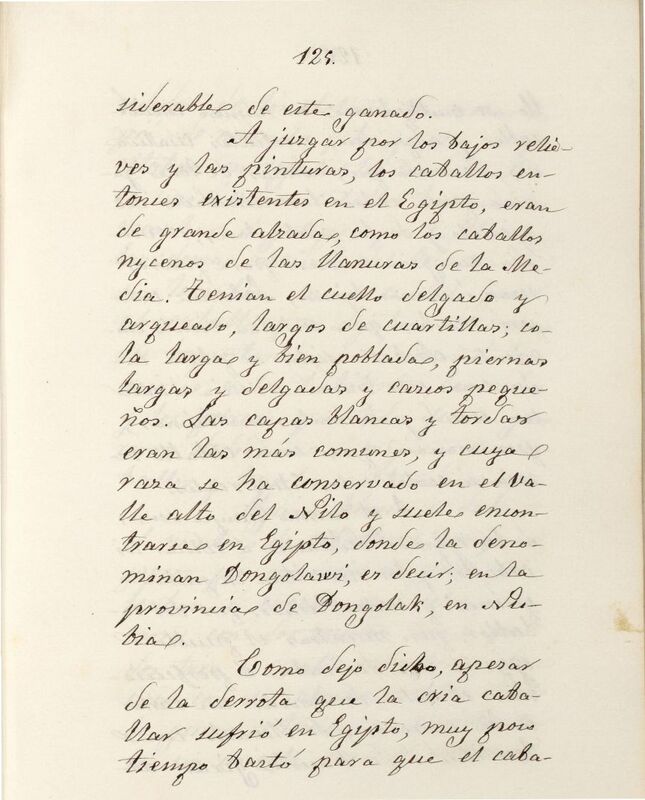 125.
siderable de este ganado.
A juzgar por los bajos relie-
ves y las pinturas, los caballos en-
tonces existentes en el Egipto, eran
de grande alzada, como los caballos
nycenos de las llanuras de la Me-
dia. Tenian el cuello delgado y
arqueado, largos de cuartillas; co-
la larga y bien poblada, piernas
largas y delgadas y cascos peque-
ños. Las capas blancas y tordas
eran las más comunes, y cuya
raza se ha conservado en el va-
lle alto del Nilo y suele encon-
trarse en Egipto, donde la deno-
minan Dongolawi, es decir; en la
provincia de Dongolak, en Nu-
bia.
Como dejo dicho, apesar
de la derrota que la cria caba-
llar sufrió en Egipto, muy poco
tiempo bastó para que el caba-